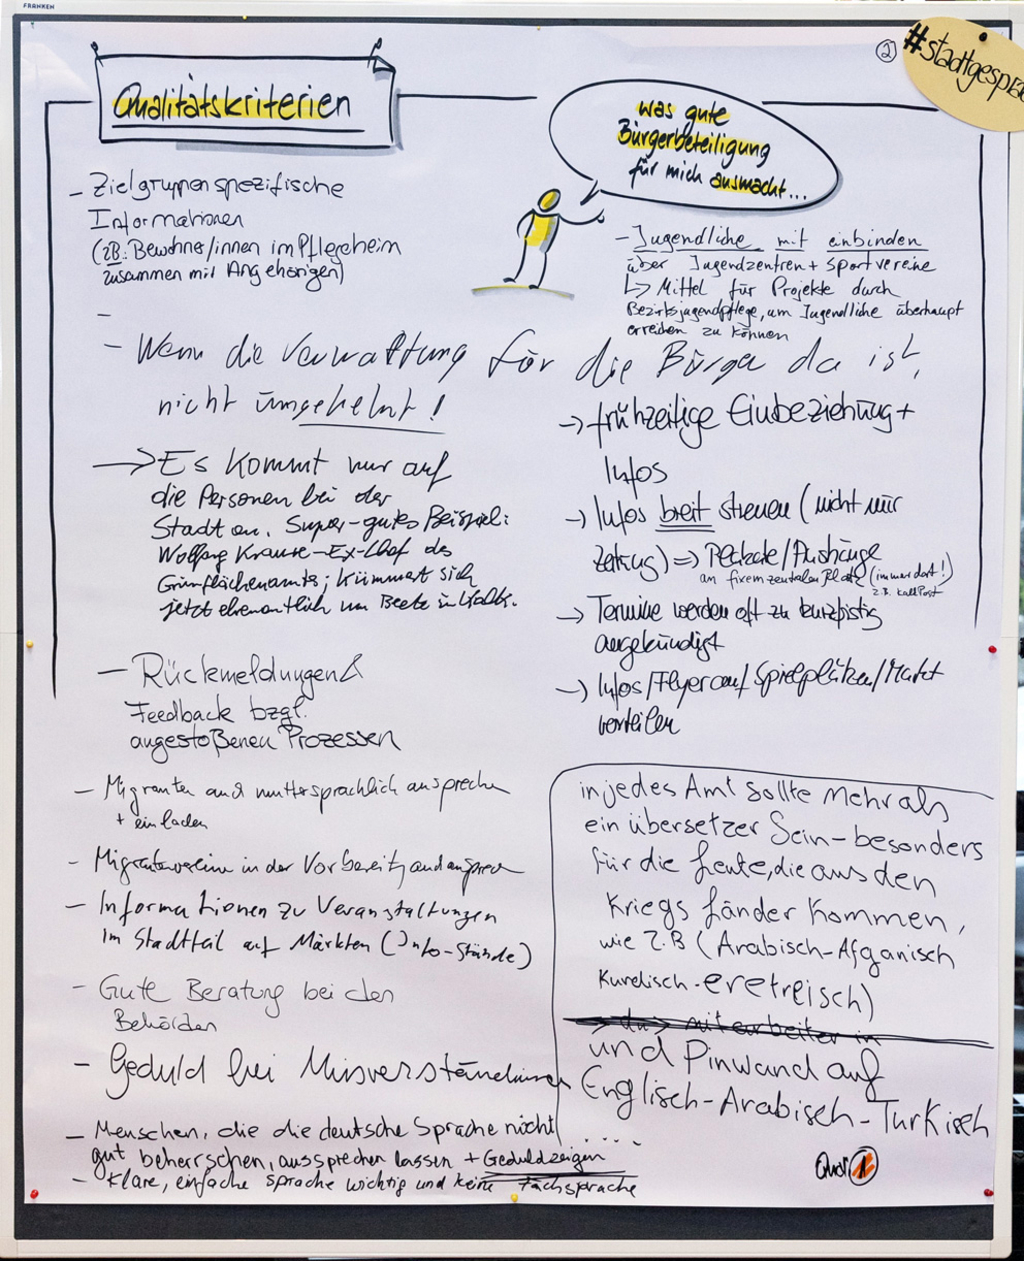 FRANKEN
②
#stadtgesprä
Qualitätskriterien
was gute
Bürgerbeteiligung
für mich ausmacht...
- Zielgruppenspezifische
Informationen
(zB: Bewohner/innen im Pflegeheim
zusammen mit Angehörigen)
-
- Jugendliche mit einbinden
über Jugendzentren + Sportvereine
↳ Mittel für Projekte durch
Bezirksjugendpflege, um Jugendliche überhaupt
erreichen zu können
- Wenn die Verwaltung für die Bürger da ist,
nicht umgekehrt!
→ Es kommt nur auf
die Personen bei der
Stadt an. Super-gutes Beispiel:
Wolfgang Krause-Ex-Chef des
Grünflächenamts; kümmert sich
jetzt ehrenamtlich um Beete in
- Rückmeldungen &
Feedback bzgl.
angestoßenen Prozessen
- Migranten auch muttersprachlich ansprechen
+ einladen
- Migrantenvereine in der Vorbereitg auch ansprech
- Informationen zu Veranstaltungen
im Stadtteil auf Märkten (Info-Stände)
- Gute Beratung bei den
Behörden
- Geduld bei Missverständnissen
- Menschen, die die deutsche Sprache nicht
gut beherrschen, aussprechen lassen + Geduld zeigen
- Klare, einfache Sprache wichtig und keine Fachsprache
→ frühzeitige Einbeziehung +
Infos
→ Infos breit streuen (nicht nur
Zeitung) => Plakate/Aushänge
am fixem zentralen Platz (immer dort!)
z.B. Kalk Post
→ Termine werden oft zu kurzfristig
angekündigt
→ Infos/Flyer auf Spielplätzen/Markt
verteilen
in jedes Amt sollte mehr als
ein übersetzer Sein-besonders
für die Leute, die aus den
Kriegs Länder kommen,
wie z.B (Arabisch-Afganisch
Kurdisch-eretreisch)
mitarbeiter in
und Pinwand auf
Englisch-Arabisch-Türkisch
.....